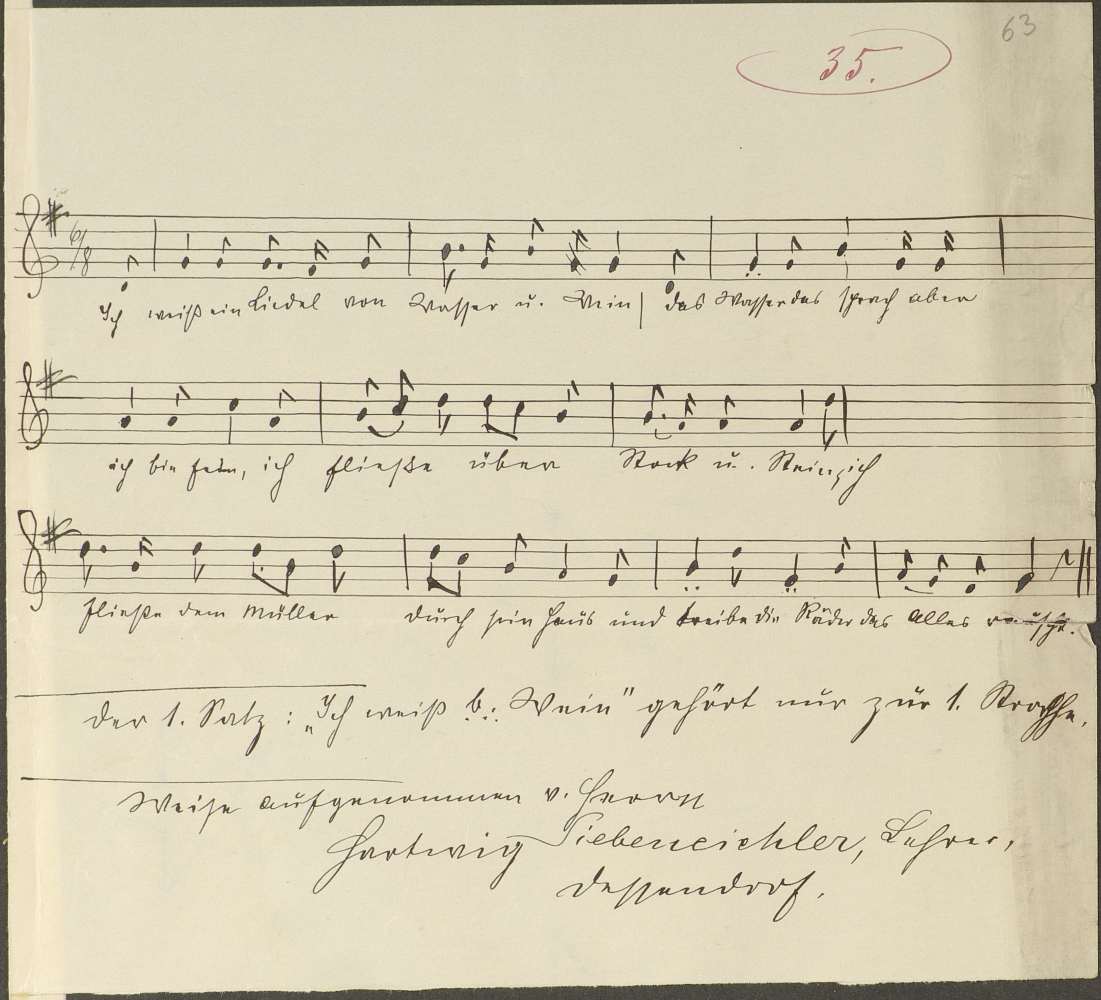 63
35.
6/8
Ich weiß ein Liedel von Wasser u. Wein | das Wasser das sprach aber
ich bin fein, ich fließe über Stock u. Stein, ich
fließe dem Müller durch sein Haus und treibe die Räder das Alles
Der 1. Satz: „Ich weiß b: Wein" gehört nur zur 1. Strophe.
Weise aufgenommen v. Herrn
Hartwig Siebeneichler, Lehrer,
Dessendorf.